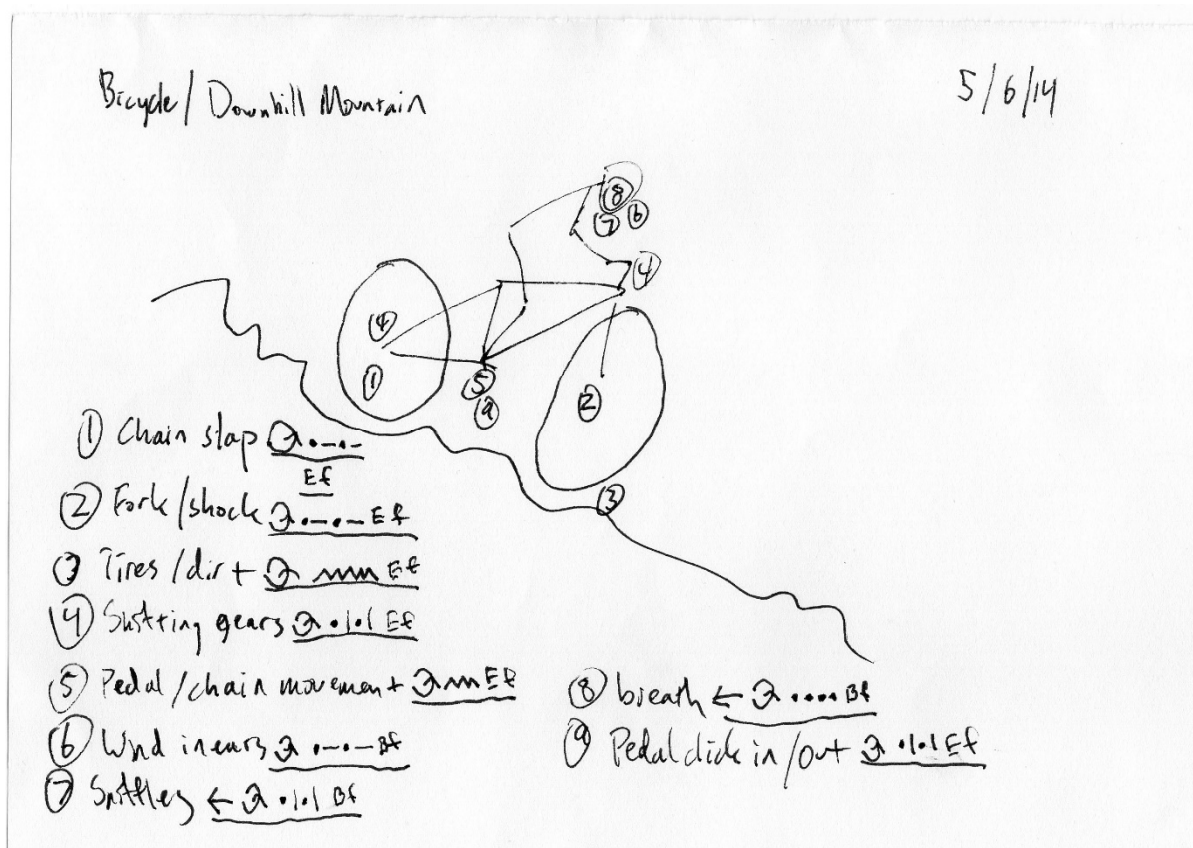 Bicycle / Downhill Mountain
5/6/14
8
7 6
4
4
1
5
9
2
3
1 Chain slap
Ef
2 Fork/shock Ef
3 Tires/dirt Ef
4 Shifting gears Ef
5 Pedal/chain movement Ef
6 Wind in ears Bf
7 Sniffles ← Bf
8 breath ← Bf
9 Pedal click in/out Ef